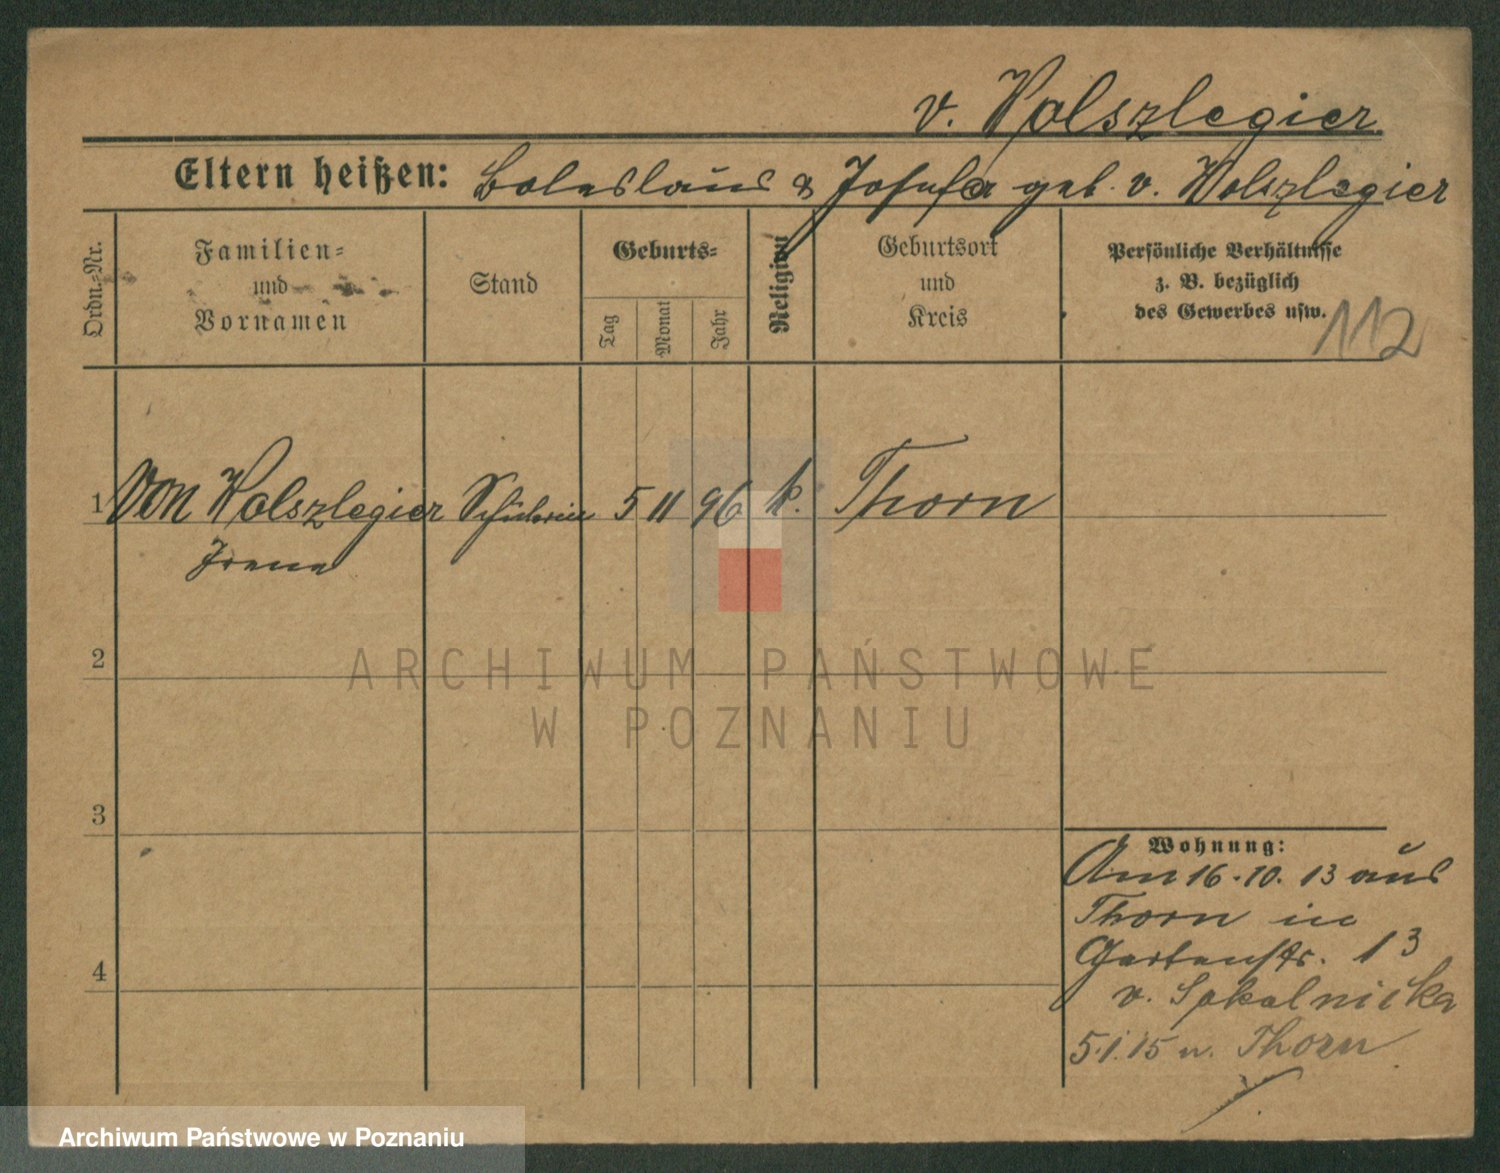 v. Wolszlegier.
Eltern heißen: Boleslaus & Josefa geb. v. Wolszlegier
Ordn.-Nr.
Familien-
und
Vornamen
Stand
Geburts-
Tag
Monat
Jahr
Religion
Geburtsort
und
Kreis
Persönliche Verhältnisse
z. B. bezüglich
des Gewerbes usw.
112
1 Von Wolszlegier Schülerin 5 11 96 k. Thorn
Irene
2
ARCHIWUM PAŃSTWOWE
W POZNANIU
3
Wohnung:
Am 16.10.13 aus
Thorn in
Gartenstr. 13
v. Sokolnicka
4
5.1.15 n. Thorn
Archiwum Państwowe w Poznaniu